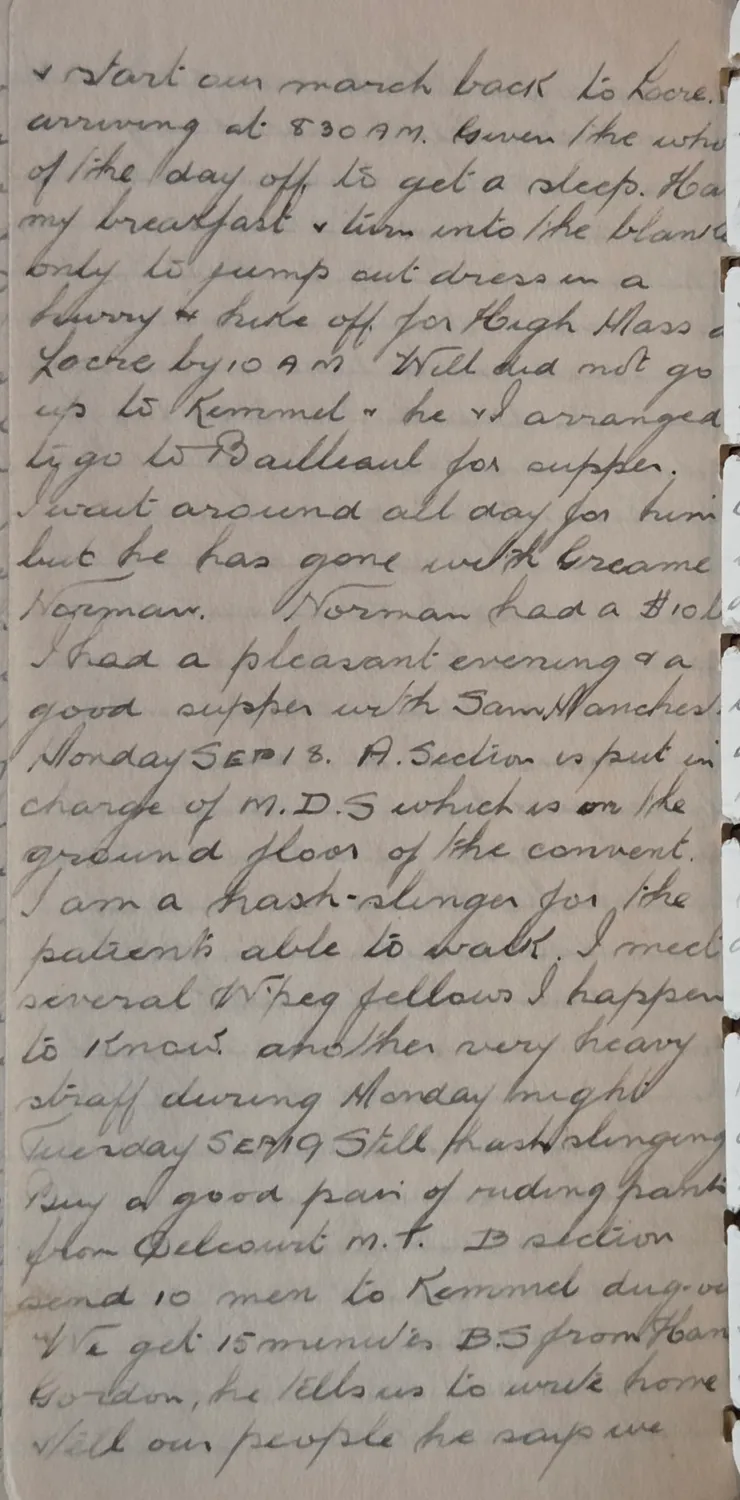 & start our march back to Locre.
arriving at 830 AM. Given the who
of the day off to get a sleep. Ha
my breakfast & turn into the blank
only to jump out dress in a
hurry & hike off for High Mass a
Locre by 10 AM Will did not go
up to Kemmel & he & I arranged
to go to Bailleaul for supper.
I wait around all day for him
but he has gone with Greame
Norman. Norman had a $10
I had a pleasant evening & a
good supper with Sam Manchest
Monday SEP 18. A. Section is put in
charge of M.D.S which is on the
ground floor of the convent.
I am a hash-slinger for the
patients able to walk. I meet
several W'peg fellows I happen
to know. another very heavy
straff during Monday night
Tuesday SEP 19 Still hash slinging
Buy a good pair of riding pants
from Delcourt M.T. B section
send 10 men to Kemmel dug-ou
We get 15 minutes B.S from Han
Gordon, he tells us to write home
& tell our people he says we